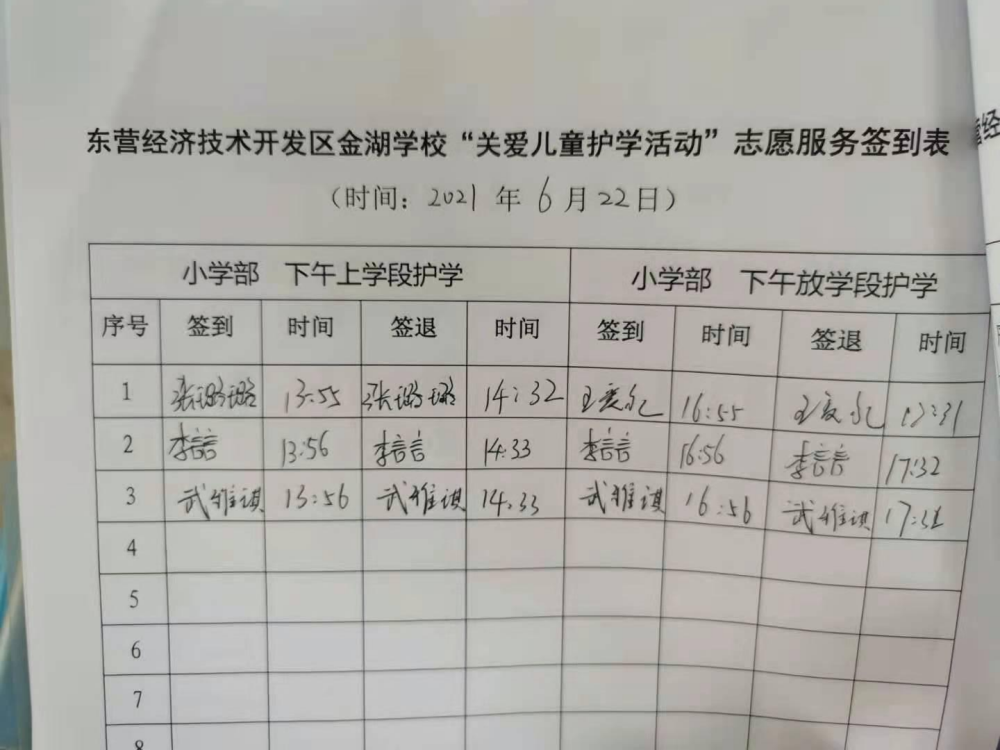 东营经济技术开发区金湖学校“关爱儿童护学活动”志愿服务签到表
(时间：2021年6月22日)
小学部 下午上学段护学 小学部 下午放学段护学
序号 签到 时间 签退 时间 签到 时间 签退 时间
1 张璐璐 13:55 张璐璐 14:32 16:55 17:31
2 李言言 13:56 李言言 14:33 李言言 16:56 李言言 17:32
3 武维祺 13:56 武维祺 14:33 武维祺 16:56 武维祺
4
5
6
7
8